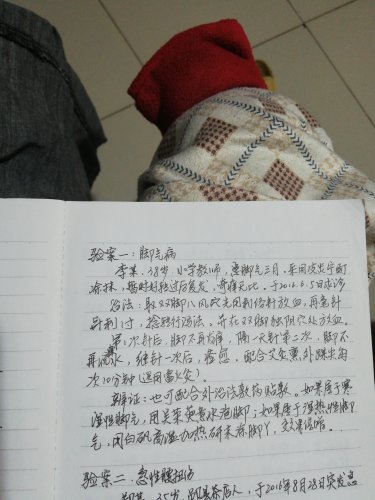 验案一：脚气病
李某，38岁，小学教师，患脚气三月，采用皮炎宁酊
涂抹，暂时好转过后复发，奇痒无比，于2016.6.5日求治
治法：取双脚八风穴先用刺络针放血，再毫针
异刺1寸，捻转行泻法，并在双脚独阴穴处放血。
第1次针后，脚不再有痒，隔一天针第二次，脚不
再流水，继针一次后，痊愈，配合艾灸熏外踝尖每
次10分钟(选用雷火灸)。
辨证：也可配合外治法敷药贴敷，如果属于寒
湿性脚气，用吴茱萸煮水泡脚；如果属于湿热性脚
气，用白矾高温加热研末塞脚丫，效果俱佳。
验案二：急性腰扭伤
某，35岁，县茶店人，于2016年8月28日突发